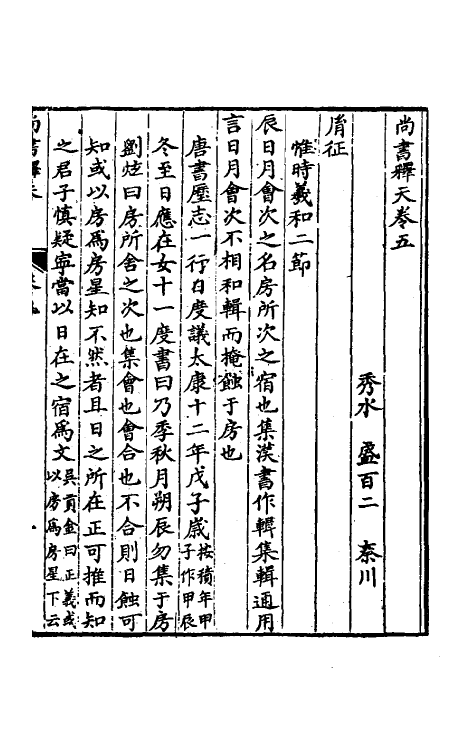 尚書釋天卷五
秀水　盛百二　秦川
胤征
惟時羲和二節
辰日月會次之名房所次之宿也集漢書作輯集輯通用
言日月會次不相和輯而掩蝕于房也
唐書歷志一行日度議太康十二年戊子歳按積年甲子作甲辰
冬至日應在女十一度書曰乃季秋月朔辰勿集于房
劉炫曰房所舍之次也集會也會合也不合則日蝕可
知或以房爲房星知不然者且日之所在正可推而知
之君子慎疑寧當以日在之宿爲文吳貢金曰正義或以房爲房星下云